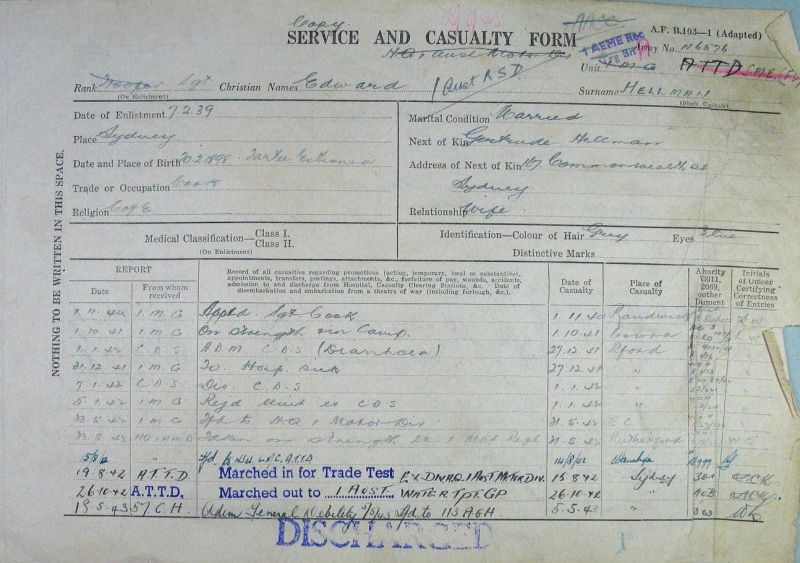 Copy.
SERVICE AND CASUALTY FORM
A.F. B.103—1 (Adapted)
Army No. N6576
1 AEME Rec
Unit A.T.T.D
1 Aust ASD
Rank Sgt Christian Names Edward Surname HELLMAN
(On Enlistment) (Block Capitals)
Date of Enlistment 7 2 39
Marital Condition Married
Place Sydney
Next of Kin Gertrude Hellmann
Date and Place of Birth 20.2.1898 Tartu Esthonia
Address of Next of Kin 117 Commonwealth St
Trade or Occupation Cook
Sydney
Religion C of E
Relationship Wife
Medical Classification—Class I.
Class II.
(On Enlistment)
Identification—Colour of Hair Grey Eyes Blue
Distinctive Marks
NOTHING TO BE WRITTEN IN THIS SPACE.
REPORT
Date
From whom received
Record of all casualties regarding promotions (acting, temporary, local or substantive), appointments, transfers, postings, attachments, &c., forfeiture of pay, wounds, accidents, admission to and discharge from Hospital, Casualty Clearing Stations, &c. Date of disembarkation and embarkation from a theatre of war (including furlough, &c.).
Date of Casualty
Place of Casualty
Initials of Officer Certifying Correctness of Entries
1.11.40 1 M G Apptd Sgt Cook 1.11.40 Randwick
1.10.41 1 M G On strength in Camp 1.10.41 Cowra
1.1.42 C.D.S ADM C.D.S (Diarrhoea) 27.12.41
31.12.41 1 M G To Hosp. sick 27.12.41 "
7.1.42 C D S Dis. C.D.S 1.1.42 "
5.1.42 1 M G Rejd Unit ex CDS 1.1.42 "
23.5.42 1 M G Tfd to HQ 1 Motor Div 21.5.42
23.5.42 Taken on strength ex 1 Mot Regt 21.5.42 Rutherford
A.T.T.D 14/8/42
19.8.42 A.T.T.D. Marched in for Trade Test Ex DIV HQ 1 AUST MOTOR DIV. 15.8.42 Sydney
26.10.42 A.T.T.D. Marched out to 1 AUST WATER TPT GP 26.10.42 "
19.5.43 57 C.H. Adm General Debility 4/5/43 tfd to 113 AGH 5.5.43 "
DISCHARGED